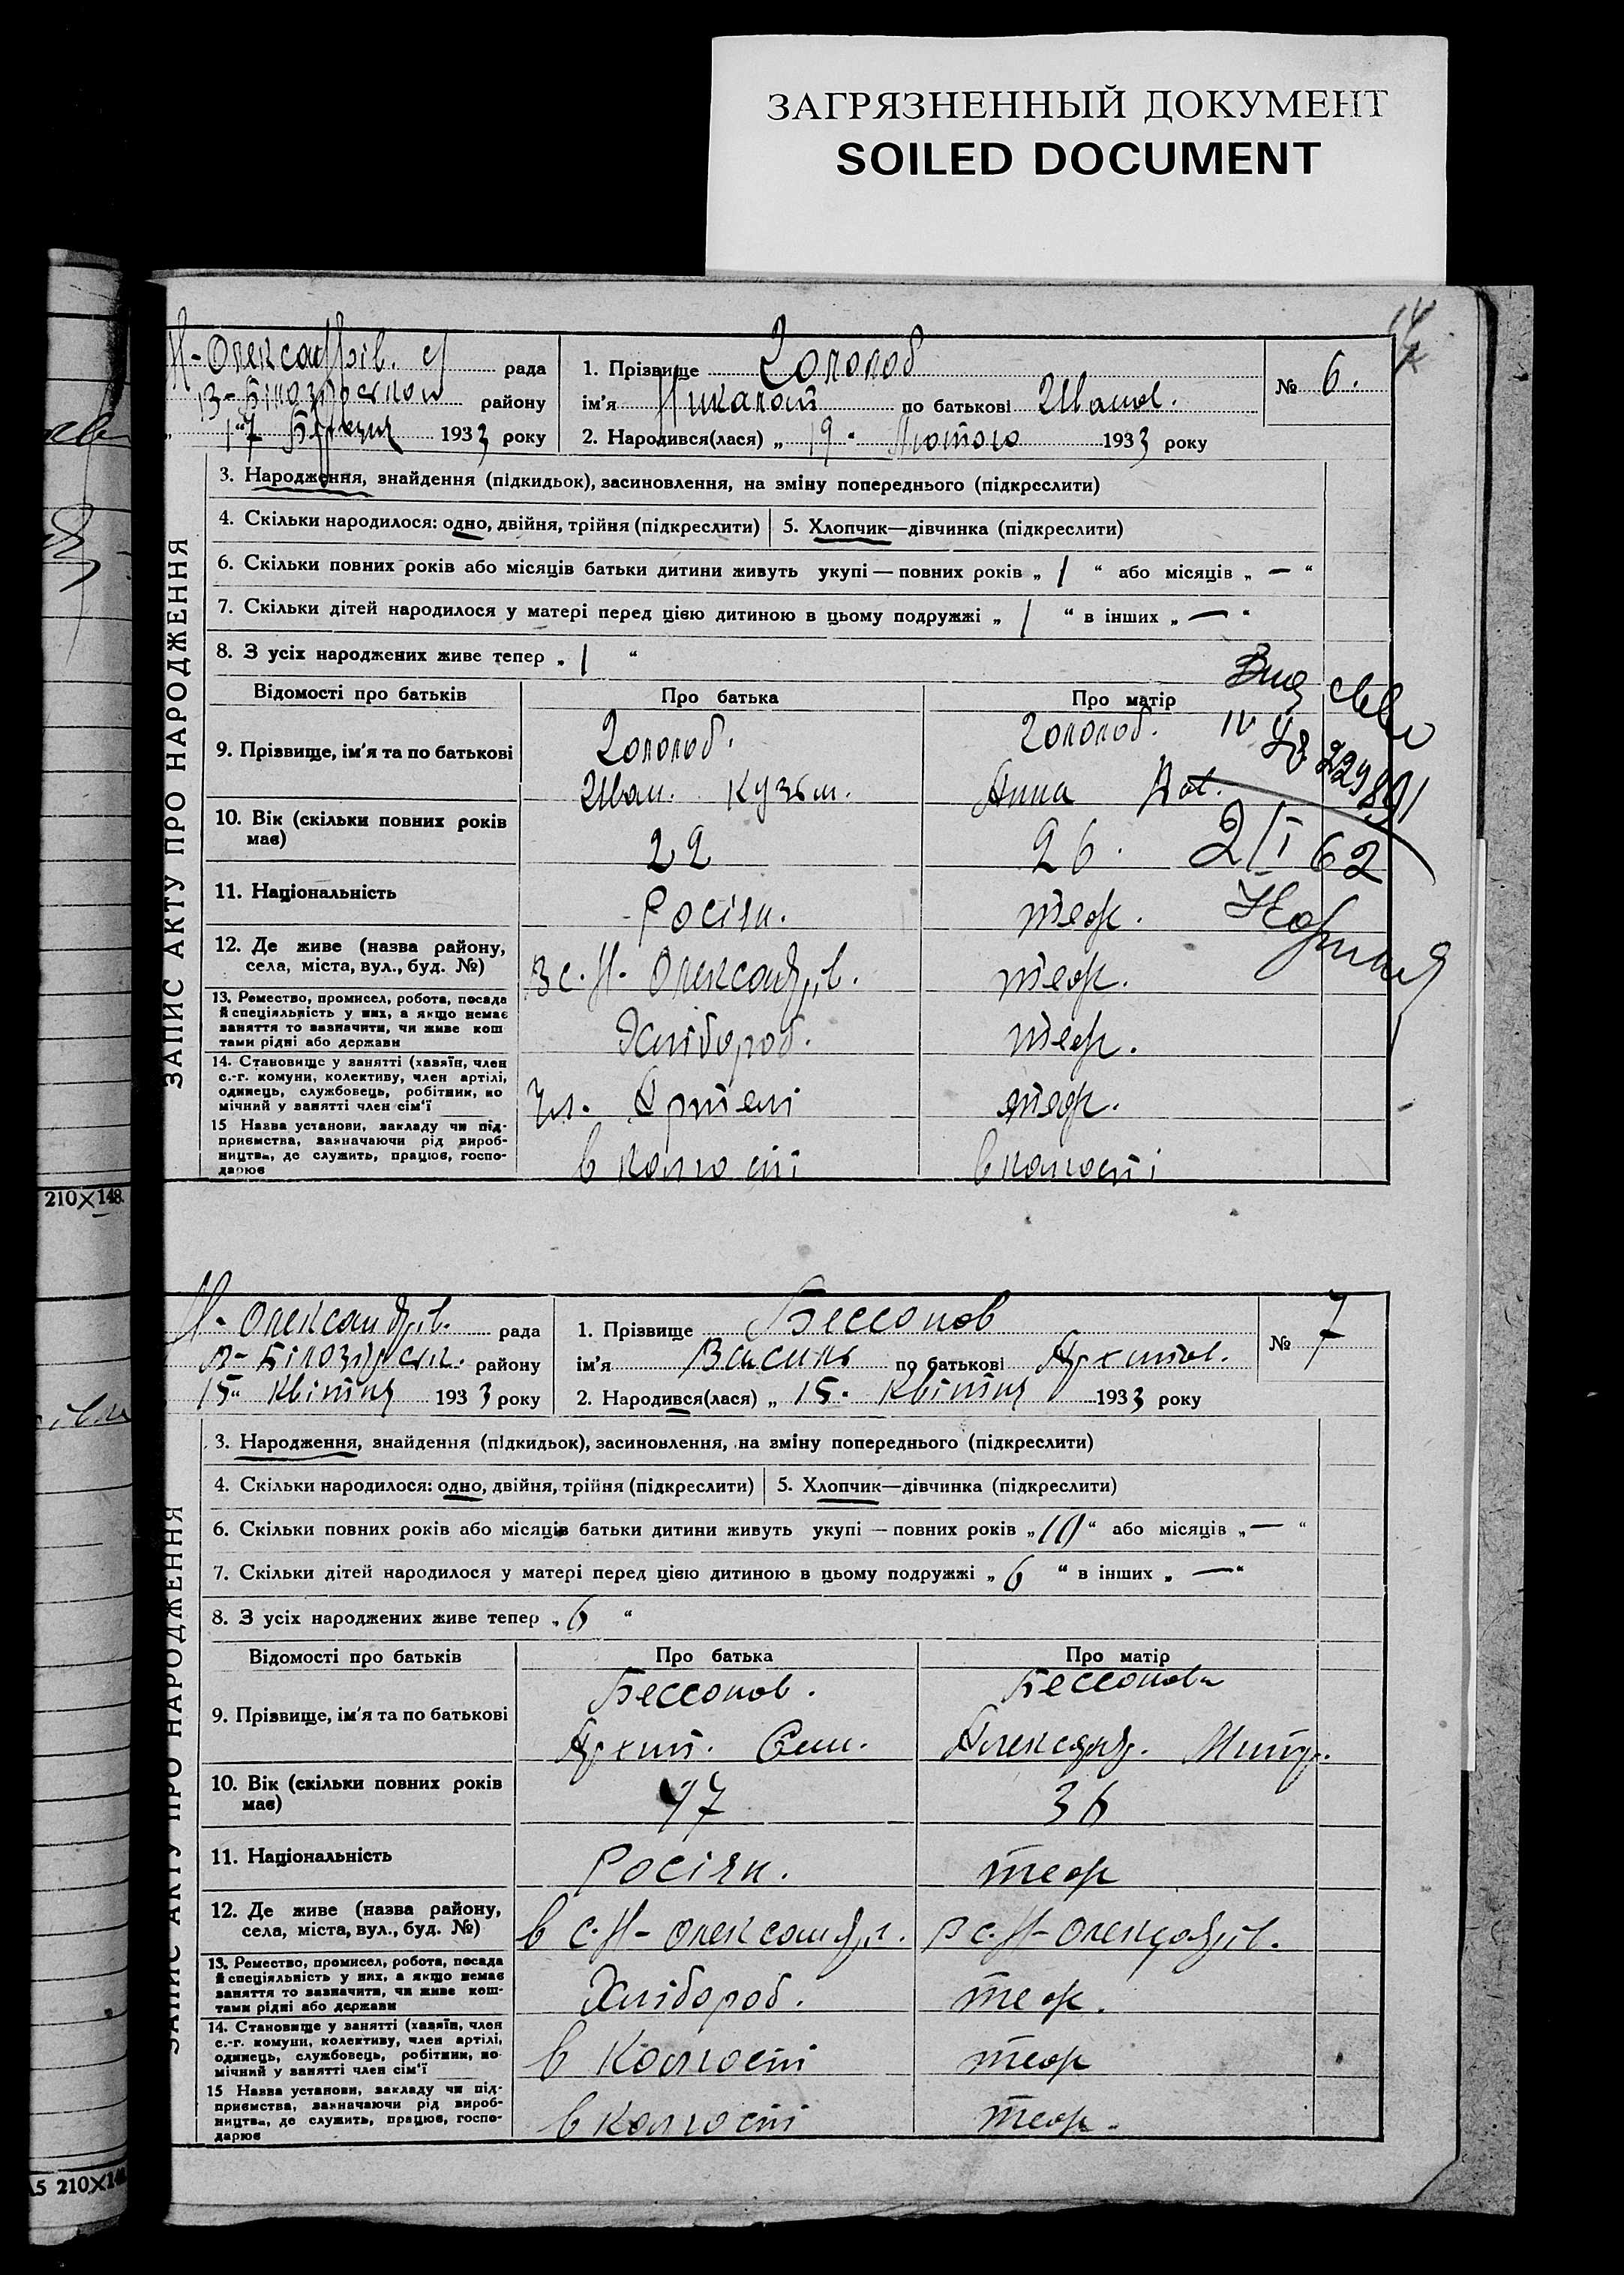 ЗАГРЯЗНЕННЫЙ ДОКУМЕНТ
SOILED DOCUMENT
Н-Олександрів. с/ рада
В-Білозірської району
„17 1933 року
1. Прізвище Гололоб
ім'я Николай по батькові Иванов.
2. Народився(лася) „19" Лютого 1933 року
№ 6.
ЗАПИС АКТУ ПРО НАРОДЖЕННЯ
3. Народження, знайдення (підкидьок), засиновлення, на зміну попереднього (підкреслити)
4. Скільки народилося: одно, двійня, трійня (підкреслити) 5. Хлопчик—дівчинка (підкреслити)
6. Скільки повних років або місяців батьки дитини живуть укупі — повних років „ 1 “ або місяців „ — “
7. Скільки дітей народилося у матері перед цією дитиною в цьому подружжі „ 1 “ в інших „ — “
8. З усіх народжених живе тепер „ 1 “
Відомості про батьків Про батька Про матір
9. Прізвище, ім'я та по батькові
Гололоб. Гололоб.
Иван. Кузьм. Анна
10. Вік (скільки повних років
має)
22 26.
2/I 62
11. Національність Росіян. теж.
12. Де живе (назва району,
села, міста, вул., буд. №)
В с. Н. Олександрів. теж.
13. Ремество, промисел, робота, посада
й спеціяльність у них, а якщо немає
заняття то зазначити, чи живе кош
тами рідні або держави
Хлібороб. теж.
14. Становище у занятті (хазяїн, член
с.-г. комуни, колективу, член артілі,
одинець, службовець, робітник, по
мічний у занятті член сім'ї
Чл. Артелі теж.
15 Назва установи, закладу чи під-
приємства, зазначаючи рід вироб-
ництва, де служить, працює, госпо-
дарює
в колгоспі в колгоспі
210×148.
Н-Олександрів. рада
В-Білозірськ. району
15" Квітня 1933 року
1. Прізвище Бессонов
ім'я Василь по батькові Архипов.
2. Народився(лася) „ 15. Квітня 1933 року
№ 7
ЗАПИС АКТУ ПРО НАРОДЖЕННЯ
3. Народження, знайдення (підкидьок), засиновлення, на зміну попереднього (підкреслити)
4. Скільки народилося: одно, двійня, трійня (підкреслити) 5. Хлопчик—дівчинка (підкреслити)
6. Скільки повних років або місяців батьки дитини живуть укупі — повних років „10“ або місяців „ — “
7. Скільки дітей народилося у матері перед цією дитиною в цьому подружжі „ 6 “ в інших „ — “
8. З усіх народжених живе тепер „ 6 “
Відомості про батьків Про батька Про матір
9. Прізвище, ім'я та по батькові
Бессонов. Бессонова
Архип. Сем. Александр. Митр.
10. Вік (скільки повних років
має)
47 36
11. Національність Росіян. теж
12. Де живе (назва району,
села, міста, вул., буд. №)
в с. Н-Олександрі. В с. Н-Олександрів.
13. Ремество, промисел, робота, посада
й спеціяльність у них, а якщо немає
заняття то зазначити, чи живе кош-
тами рідні або держави
Хлібороб. теж.
14. Становище у занятті (хазяїн, член
с.-г. комуни, колективу, член артілі,
одинець, службовець, робітник, по-
мічний у занятті член сім'ї
в Колгоспі теж
15 Назва установи, закладу чи під-
приємства, зазначаючи рід вироб-
ництва, де служить, працює, госпо-
дарює
в колгоспі теж.
А5 210×148